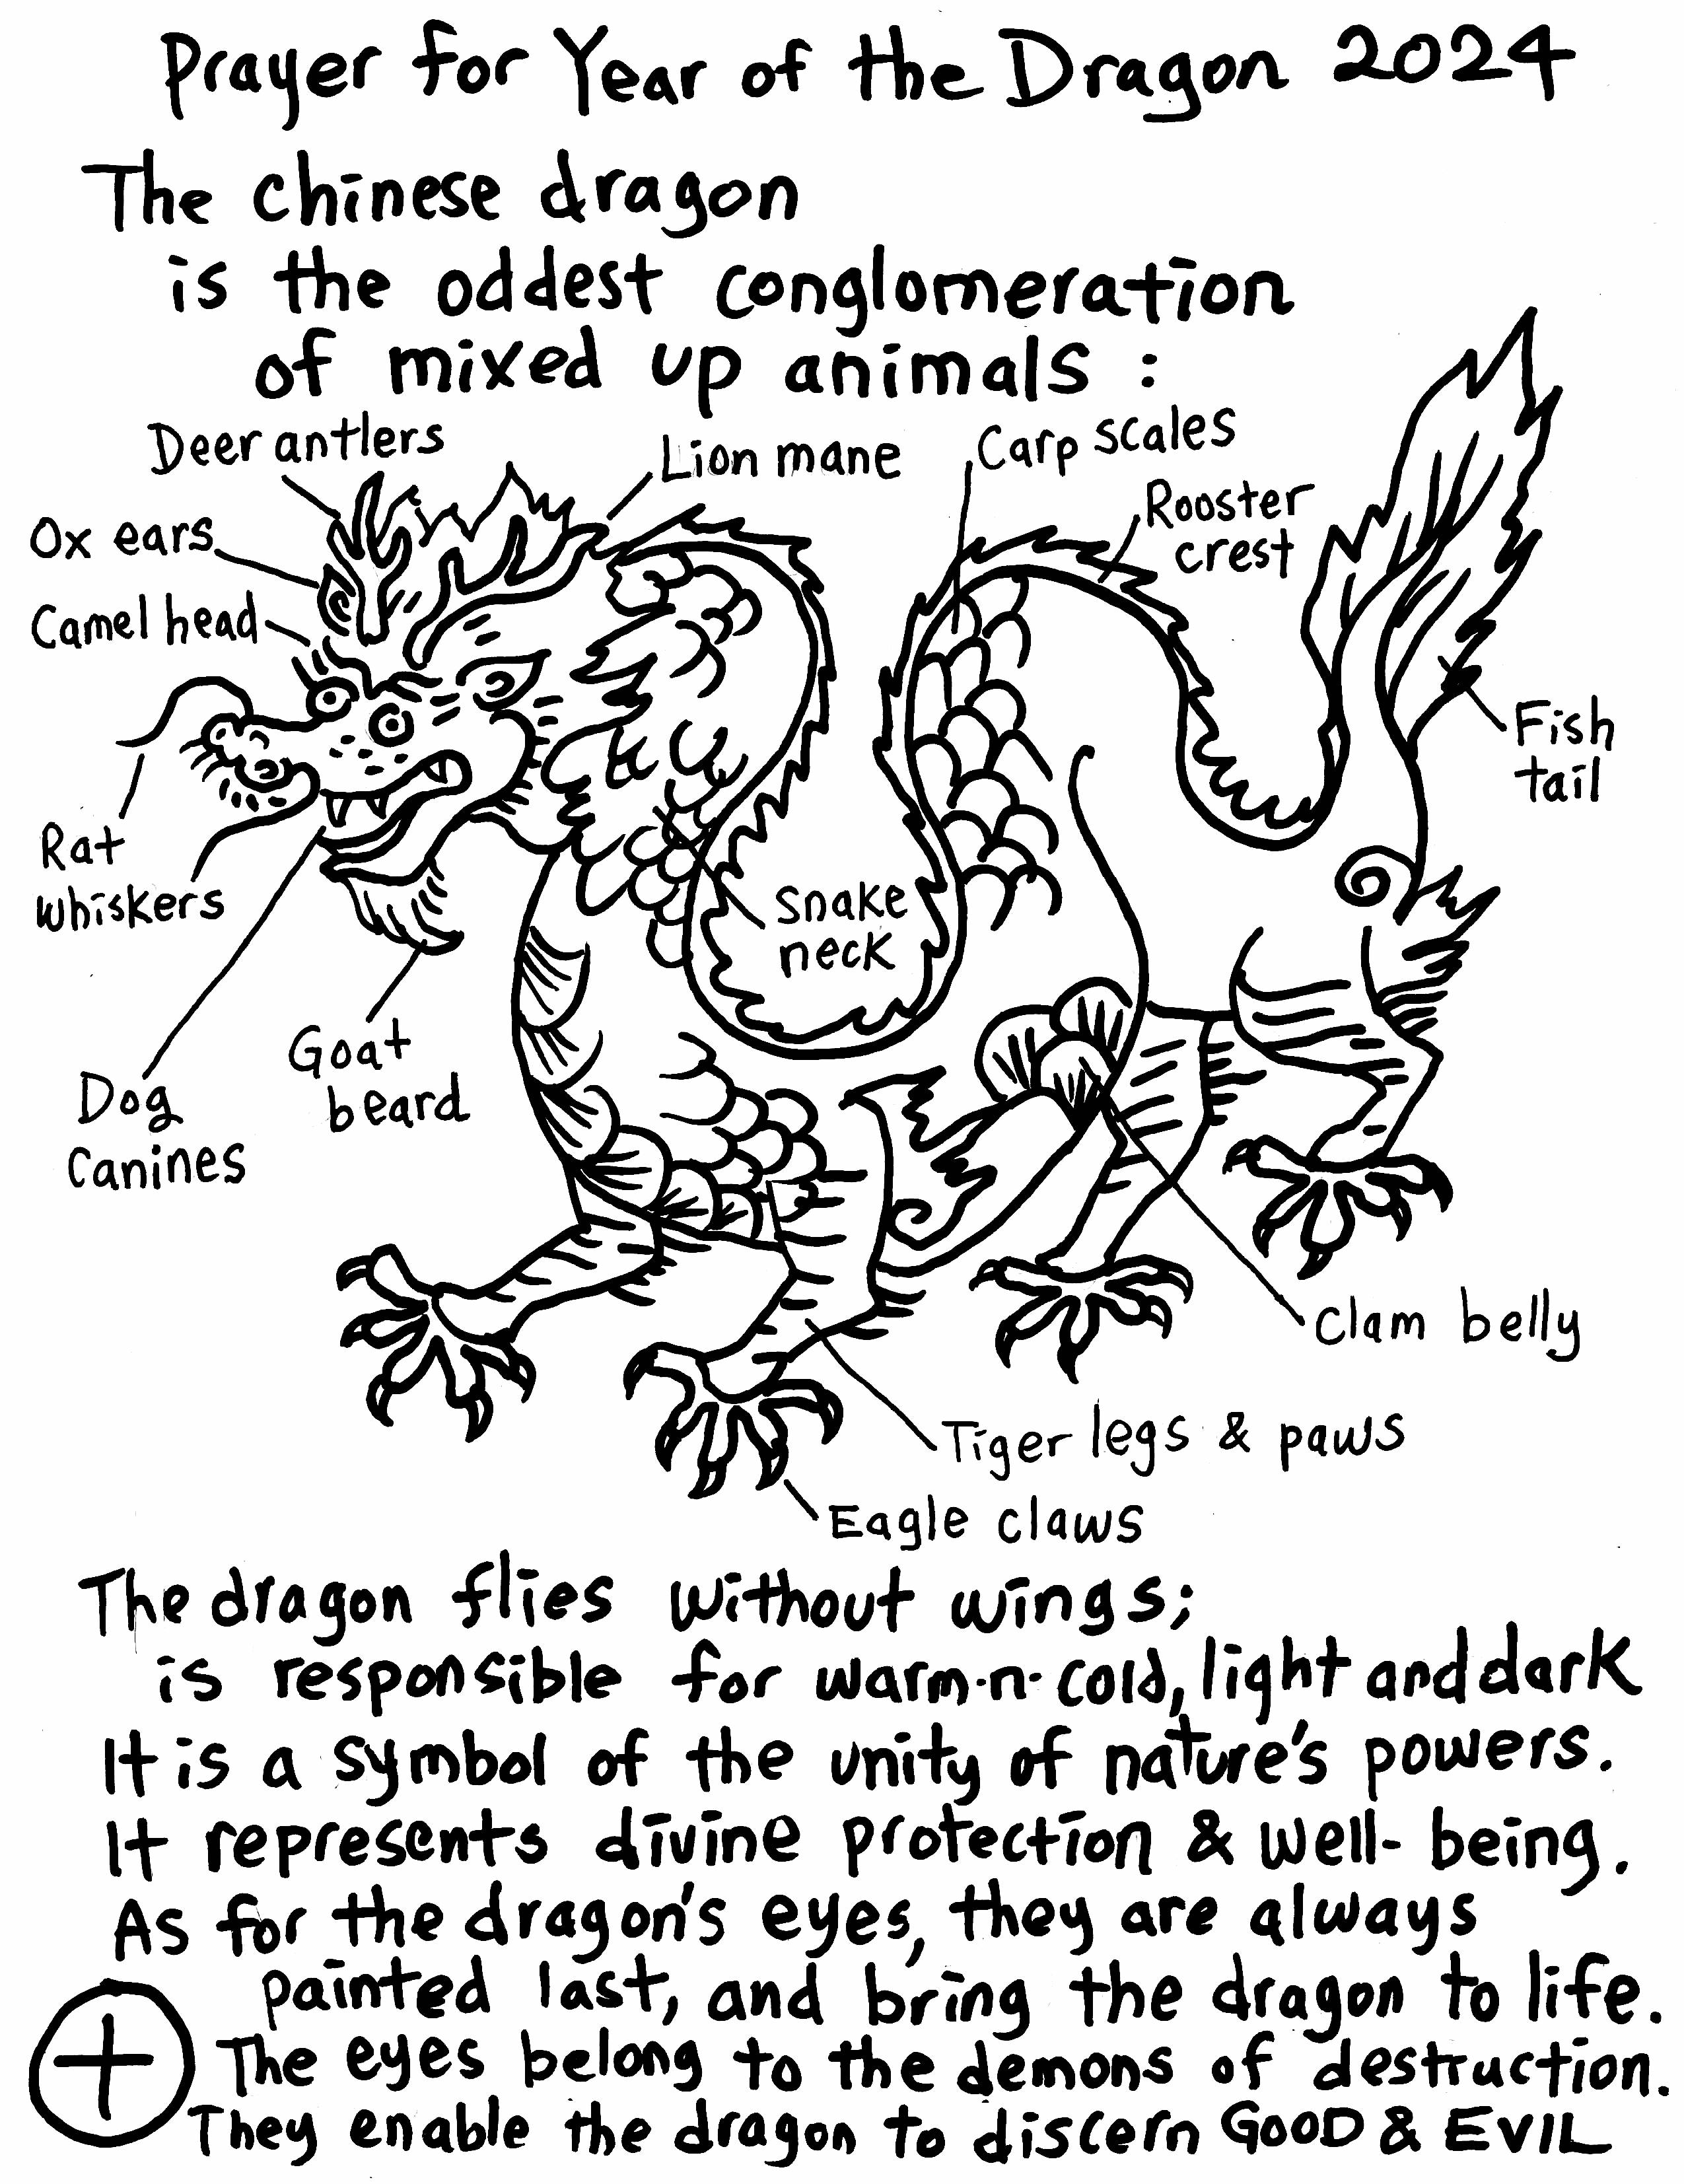 Prayer for Year of the Dragon 2024
The Chinese dragon
is the oddest conglomeration
of mixed up animals :
Deer antlers
Lion mane
Carp scales
Rooster
crest
Ox ears
Camel head
Fish
tail
Rat
whiskers
Snake
neck
Goat
beard
Dog
Canines
Clam belly
Tiger legs & paws
Eagle claws
The dragon flies without wings;
is responsible for warm-n-cold, light and dark
It is a symbol of the unity of nature's powers.
It represents divine protection & well-being.
As for the dragon's eyes, they are always
painted last, and bring the dragon to life.
The eyes belong to the demons of destruction.
They enable the dragon to discern GOOD & EVIL